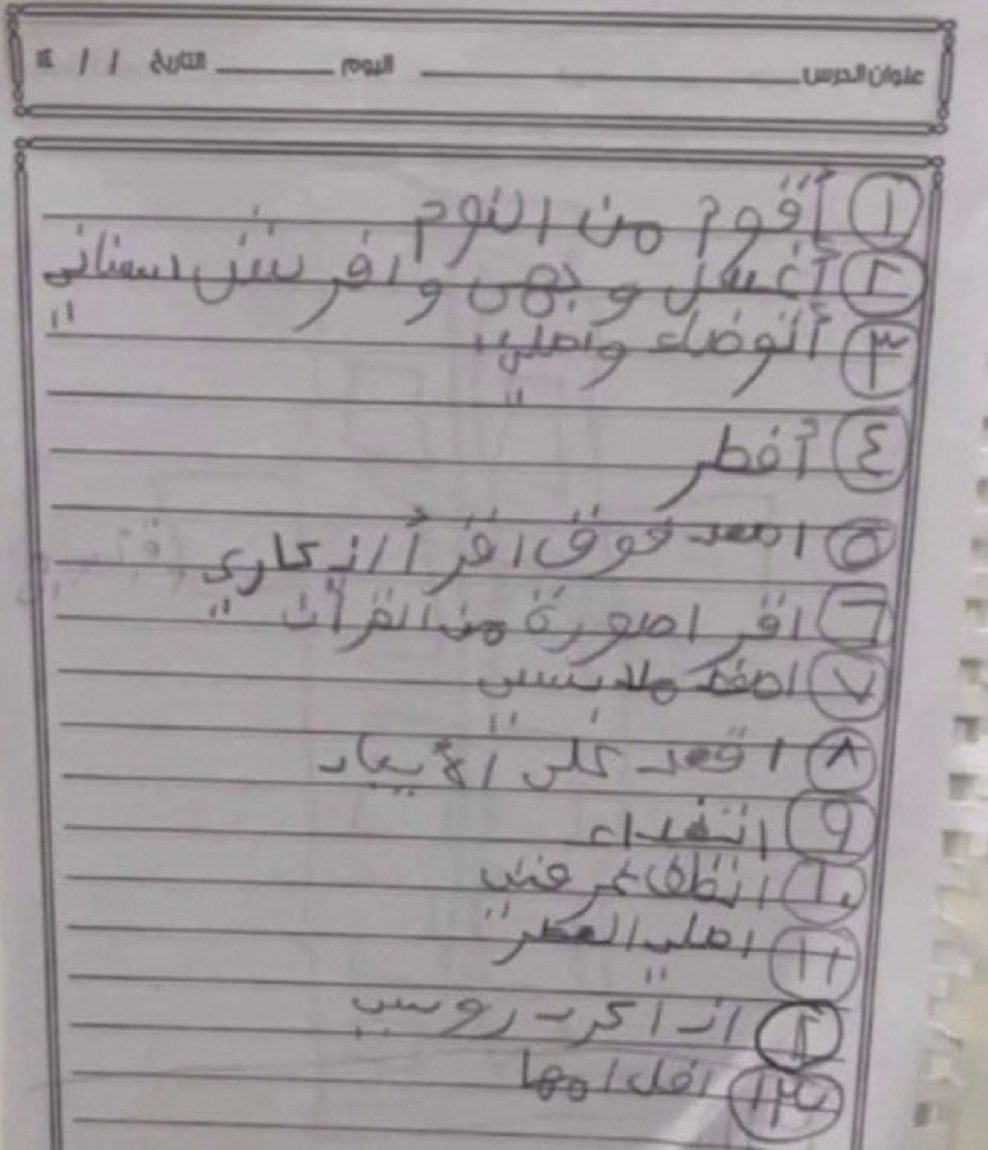 عنوان الدرس اليوم التاريخ / / ١٤
١ أقوم من النوم
٢ أغسل وجهي وافرشش اسناني
٣ أتوضاء واصلي
٤ أفطر
٥ اصعد فوق اقرأ اذكاري
٦ اقر اصورة من القرآن
٧ ملابسي
٨ اقعد على الأيباد
٩ اتغداء
١٠ انظف غرفتي
١١ اصلي العصر
١٢ اذاكر دروسي
١٣